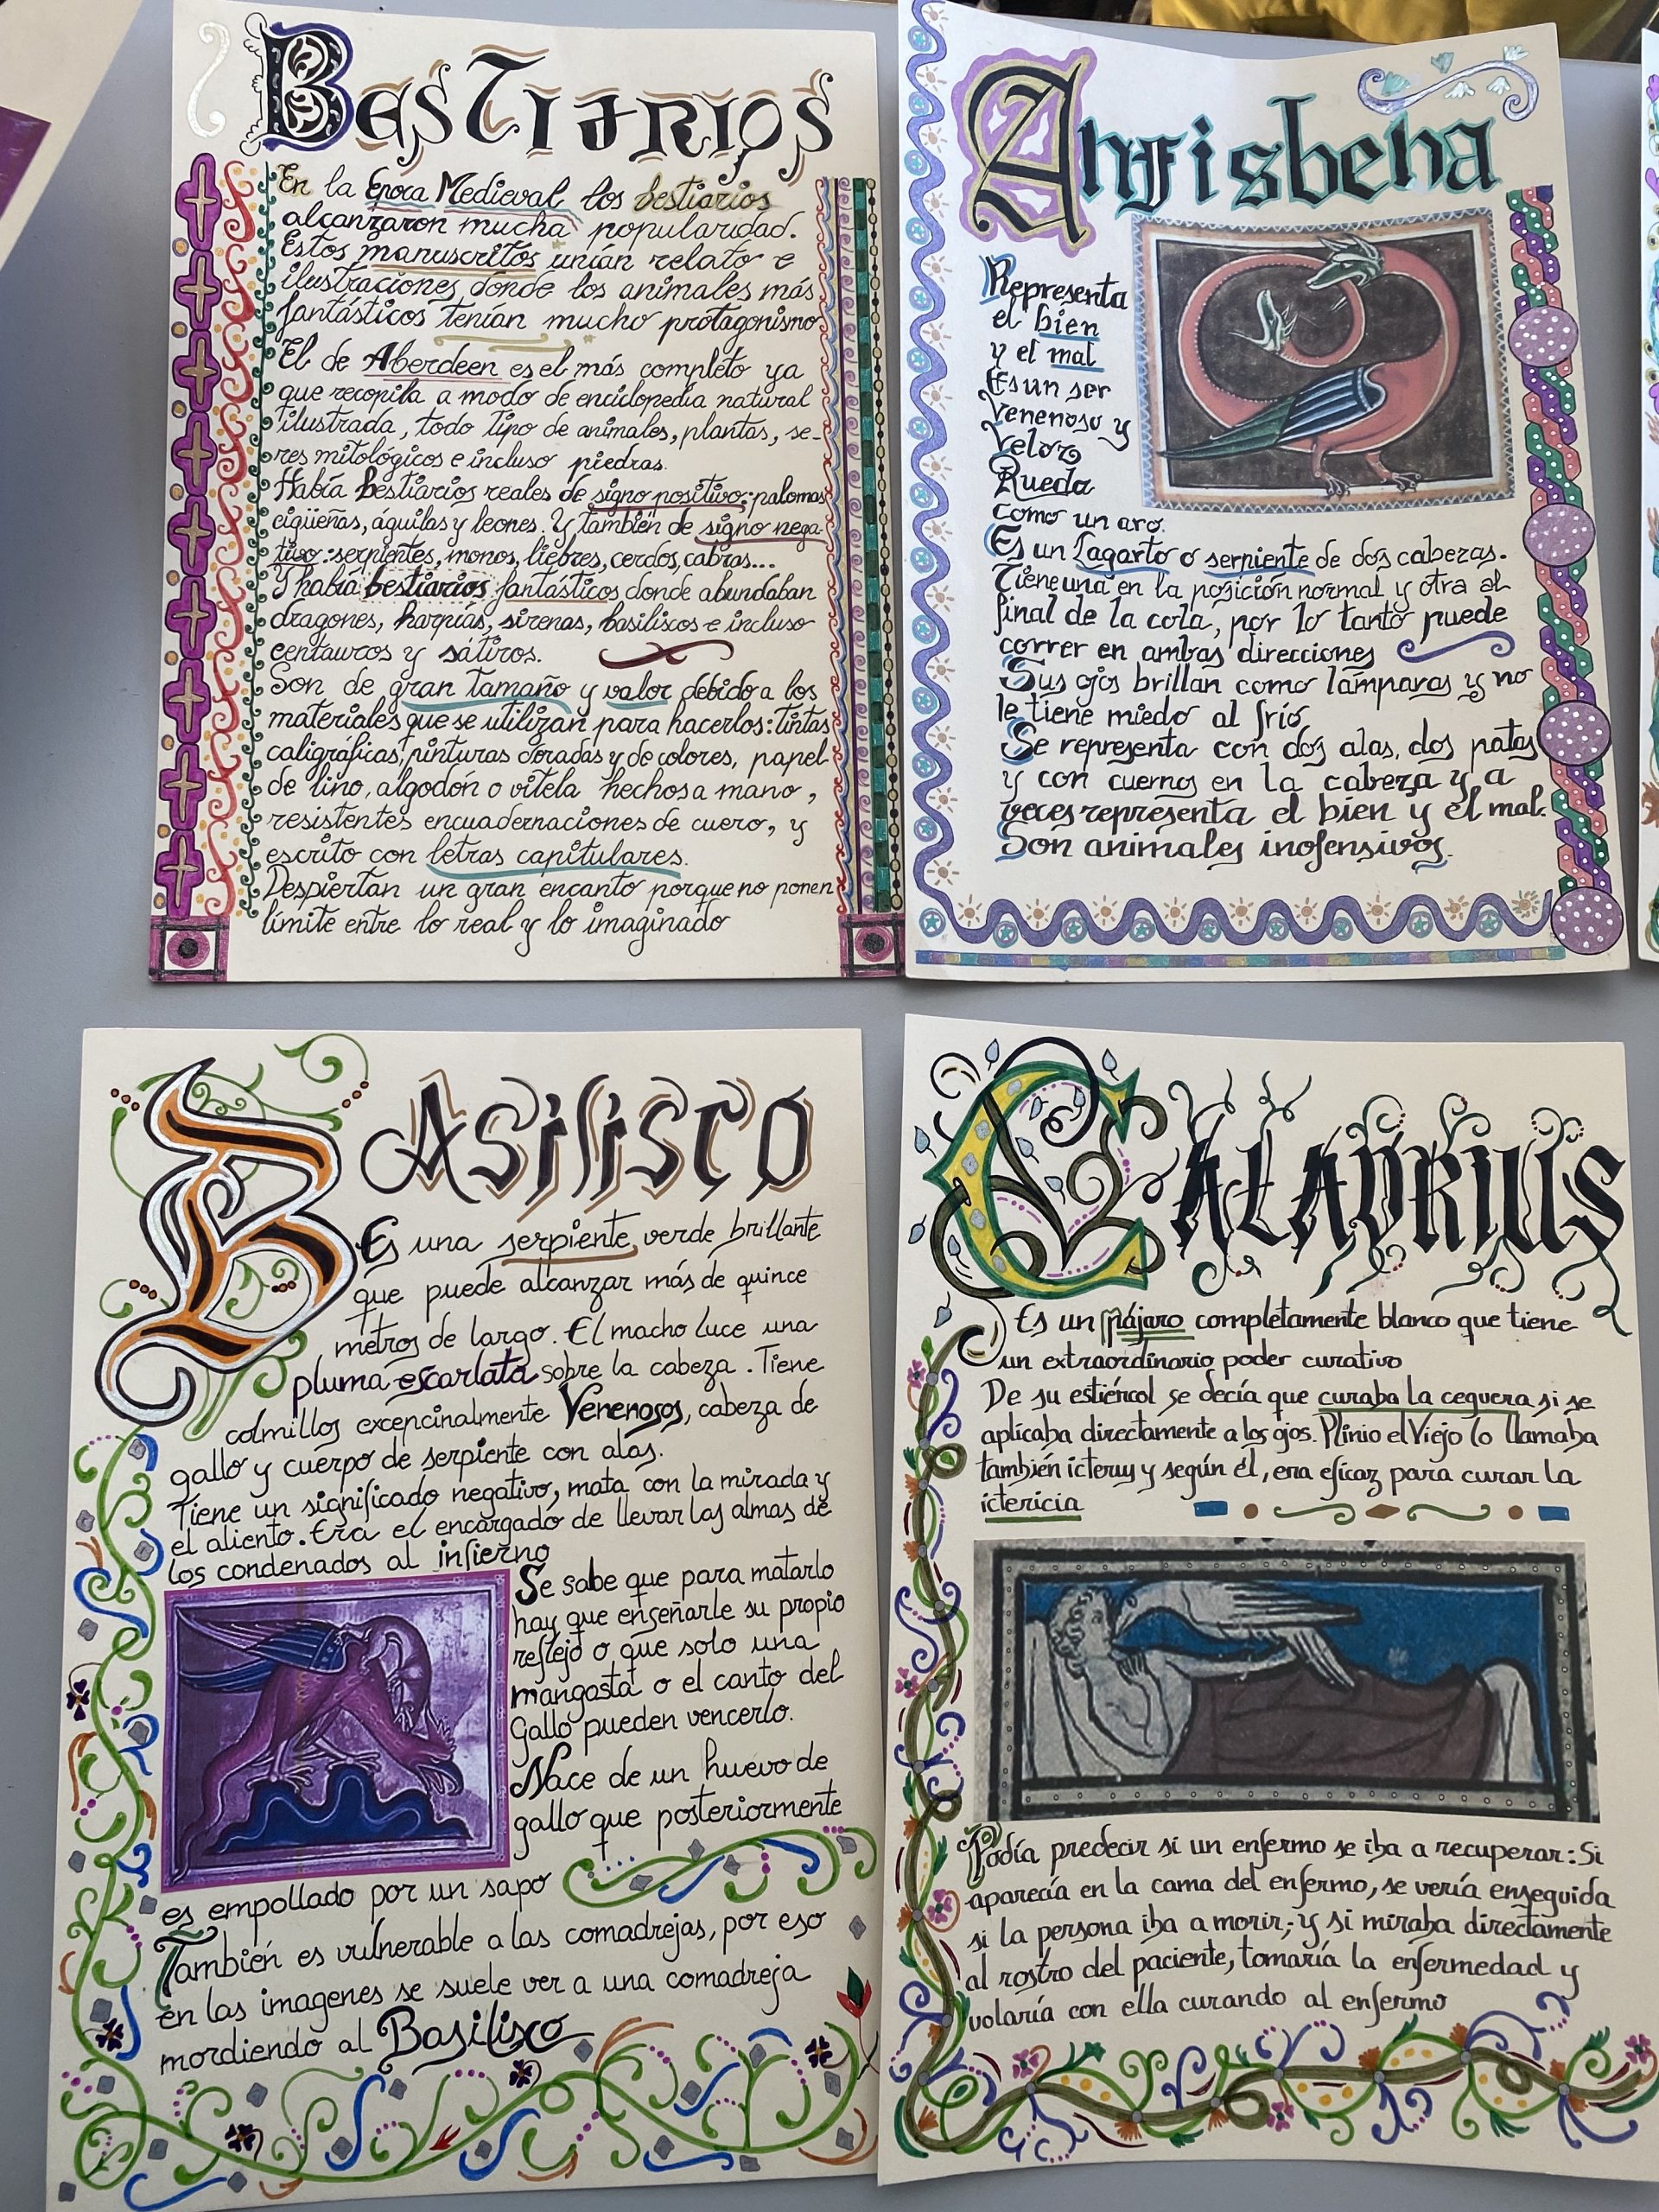 Bestiarios
En la Época Medieval los bestiarios
alcanzaron mucha popularidad.
Estos manuscritos unían relato e
ilustraciones donde los animales más
fantásticos tenían mucho protagonismo
El de Aberdeen es el más completo ya
que recopila a modo de enciclopedia natural
ilustrada, todo tipo de animales, plantas, se-
res mitológicos e incluso piedras.
Había bestiarios reales de signo positivo: palomas
cigüeñas, águilas y leones. Y también de signo nega-
tivo: serpientes, monos, liebres, cerdos, cabras...
Y había bestiarios fantásticos donde abundaban
dragones, harpías, sirenas, basiliscos e incluso
centauros y sátiros.
Son de gran tamaño y valor debido a los
materiales que se utilizan para hacerlos: tintas
caligráficas, pinturas doradas y de colores, papel
de lino, algodón o vitela hechos a mano,
resistentes encuadernaciones de cuero, y
escrito con letras capitulares.
Despiertan un gran encanto porque no ponen
límite entre lo real y lo imaginado
Anfisbena
Representa
el bien
y el mal
Es un ser
venenoso y
veloz
Rueda
como un aro.
Es un Lagarto o serpiente de dos cabezas.
Tiene una en la posición normal y otra al
final de la cola, por lo tanto puede
correr en ambas direcciones
Sus ojos brillan como lámparas y no
le tiene miedo al frío
Se representa con dos alas, dos patas
y con cuernos en la cabeza y a
veces representa el bien y el mal.
Son animales inofensivos.
Basilisco
Es una serpiente verde brillante
que puede alcanzar más de quince
metros de largo. El macho luce una
pluma escarlata sobre la cabeza. Tiene
colmillos excencinalmente Venenosos, cabeza de
gallo y cuerpo de serpiente con alas.
Tiene un significado negativo, mata con la mirada y
el aliento. Era el encargado de llevar las almas de
los condenados al infierno
Se sabe que para matarlo
hay que enseñarle su propio
reflejo o que solo una
mangosta o el canto del
Gallo pueden vencerlo.
Nace de un huevo de
gallo que posteriormente
es empollado por un sapo
También es vulnerable a las comadrejas, por eso
en las imagenes se suele ver a una comadreja
mordiendo al Basilisco
CALADRIUS
Es un pájaro completamente blanco que tiene
un extraordinario poder curativo
De su estiércol se decía que curaba la ceguera si se
aplicaba directamente a los ojos. Plinio el Viejo lo llamaba
también icteruy y según él, era eficaz para curar la
ictericia
Podía predecir si un enfermo se iba a recuperar: Si
aparecía en la cama del enfermo, se vería enseguida
si la persona iba a morir; y si miraba directamente
al rostro del paciente, tomaría la enfermedad y
volaría con ella curando al enfermo